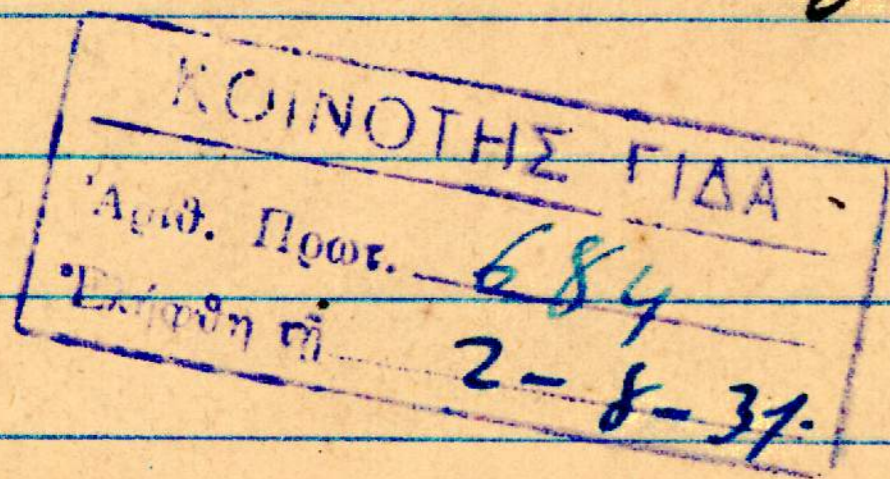 ΚΟΙΝΟΤΗΣ ΓΙΔΑ
Ἀριθ. Πρωτ. 684
Ἐλήφθη τῇ 2-8-31.